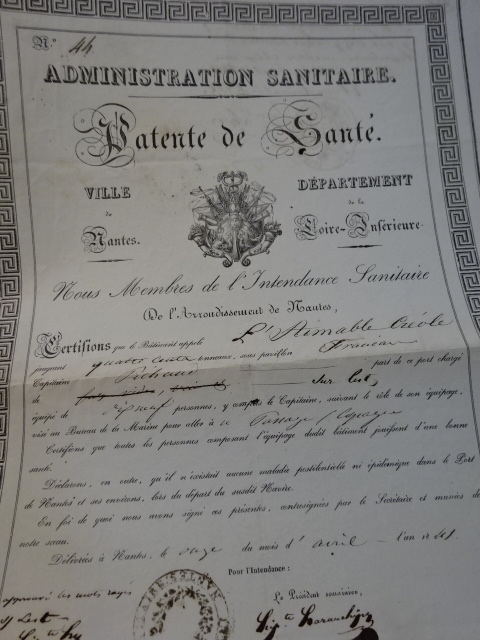 N.º 44
ADMINISTRATION SANITAIRE.
Patente de Santé.
VILLE
de
Nantes.
DÉPARTEMENT
de la
Loire-Inférieure
Nous Membres de l'Intendance Sanitaire
De l'Arrondissement de Nantes,
Certifions que le Bâtiment appelé L'Aimable Créole
jaugeant quatre cents tonneaux, sous pavillon Français
Capitaine part de ce port chargé
de Sur Lest,
équipé de neuf personnes, y compris le Capitaine, suivant le rôle de son équipage,
visé au Bureau de la Marine pour aller à
Certifions que toutes les personnes composant l'équipage dudit bâtiment jouissent d'une bonne
santé.
Déclarons, en outre, qu'il n'existait aucune maladie pestilentielle ni épidémique dans le Port
de Nantes et ses environs, lors du départ du susdit Navire.
En foi de quoi nous avons signé ces présentes, contresignées par le Secrétaire et munies de
notre sceau.
Délivrées à Nantes, le onze du mois d'avril l'an 18 41
Pour l'Intendance:
approuvé les mots rayés
Lest
Le Président semainier,